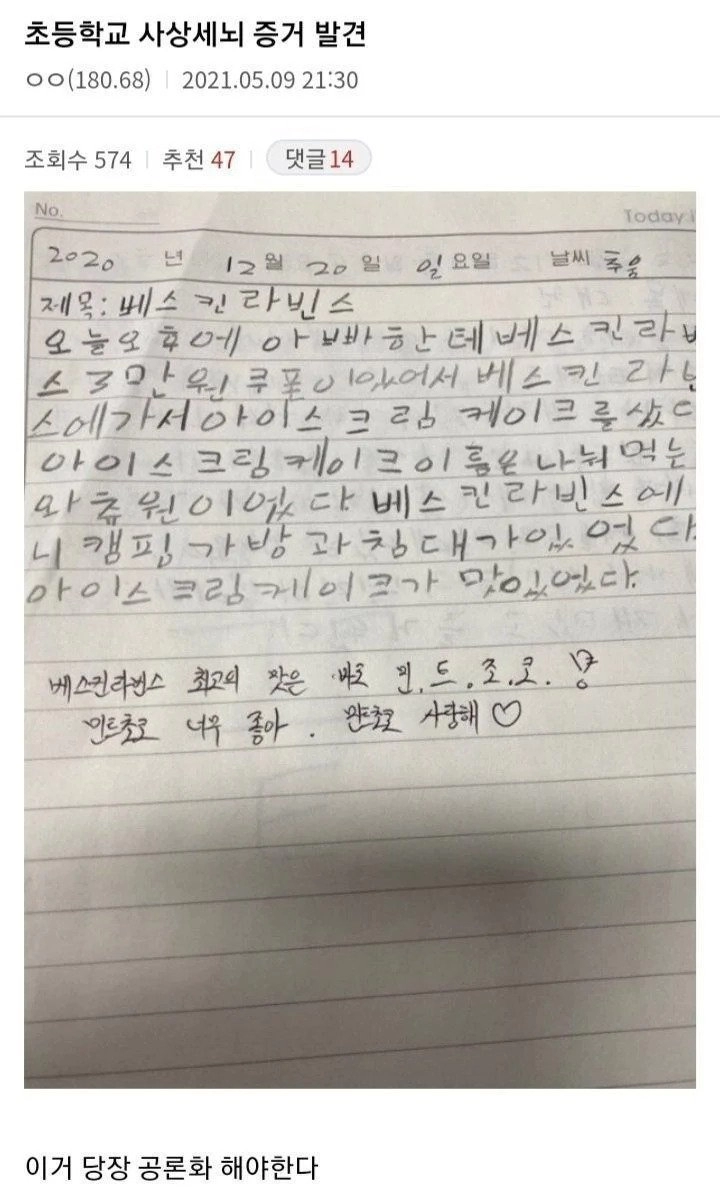 초등학교 사상세뇌 증거 발견
ㅇㅇ(180.68) | 2021.05.09 21:30
조회수 574 | 추천 47 | 댓글 14
No. Today
2020 년 12월 20일 일요일 날씨 추움
제목: 베스킨라빈스
오늘오후에 아빠한테베스킨라
스 3만원 쿠폰이있어서 베스킨라
스에가서아이스크림 케이크를샀다
아이스크림케이크이름은 나눠먹는
와츄원이었다 베스킨라빈스에
니 캠핑가방과침대가있었다.
아이스크림케이크가 맛있었다.
베스킨라빈스 최고의 맛은 바로 민.트.초.코.
민트초코 너무 좋아. 민트초코 사랑해♡
이거 당장 공론화 해야한다